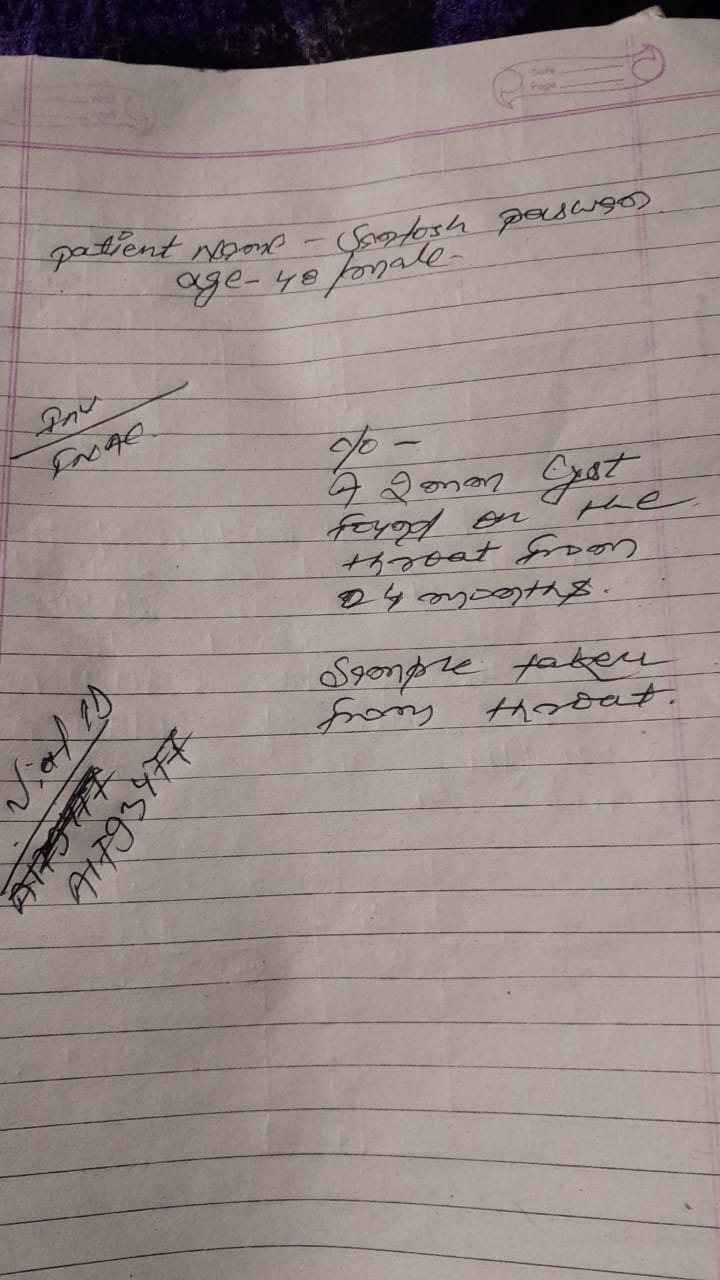 Date
Page
patient Name - Santosh paswan
age - 48 female -
Inv
FNAC.
c/o -
A 2 mm Cyst
found on the
throat from
24 months.
Sample taken
from throat.
Vial ID
A1793477